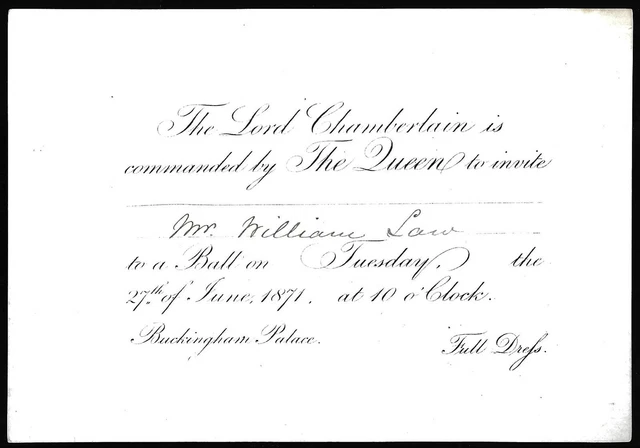 The Lord Chamberlain is
commanded by The Queen to invite
Mr. William Law
to a Ball on Tuesday, the
27th of June, 1871. at 10 o'Clock.
Buckingham Palace.
Full Dreſs.